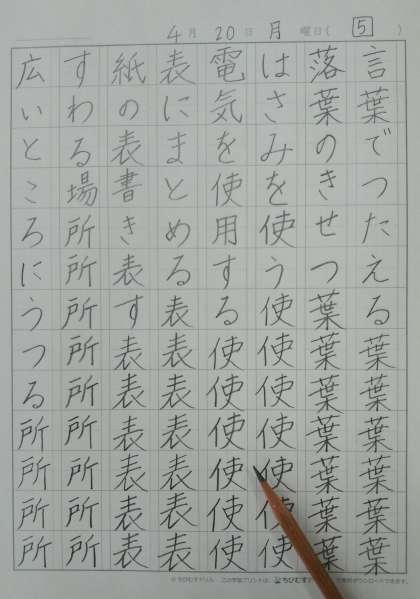 4月20日月曜日(5)
言葉でつたえる葉葉葉葉葉葉
落葉のきせつ葉葉葉葉葉葉葉
はさみを使う使使使使使使使
電気を使用する使使使使使使
表にまとめる表表表表表表表
紙の表書き表す表表表表表表
すわる場所所所所所所所所所
広いところにうつる所所所所
©ちびむすドリル この学習プリントは、ちびむす ダウンロードできます。